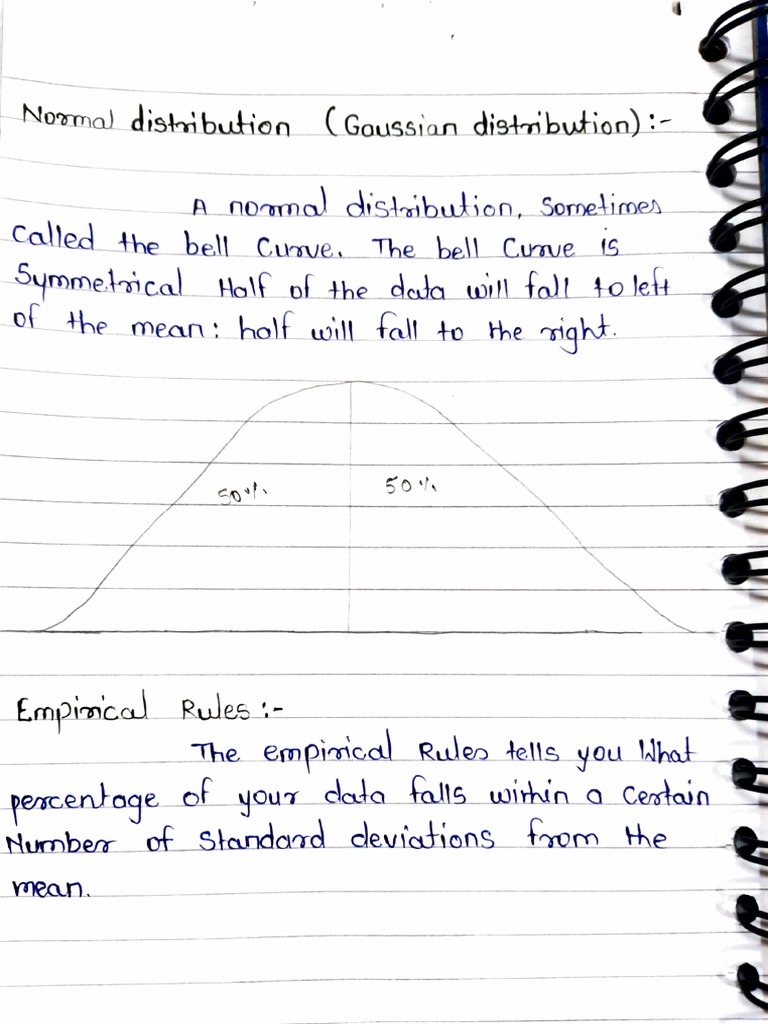 Normal distribution (Gaussian distribution):-
A normal distribution, Sometimes
called the bell Curve. The bell Curve is
Symmetrical Half of the data will fall to left
of the mean: half will fall to the right.
50% 50%
Empirical Rules:-
The empirical Rules tells you What
percentage of your data falls within a Certain
Number of Standard deviations from the
mean.